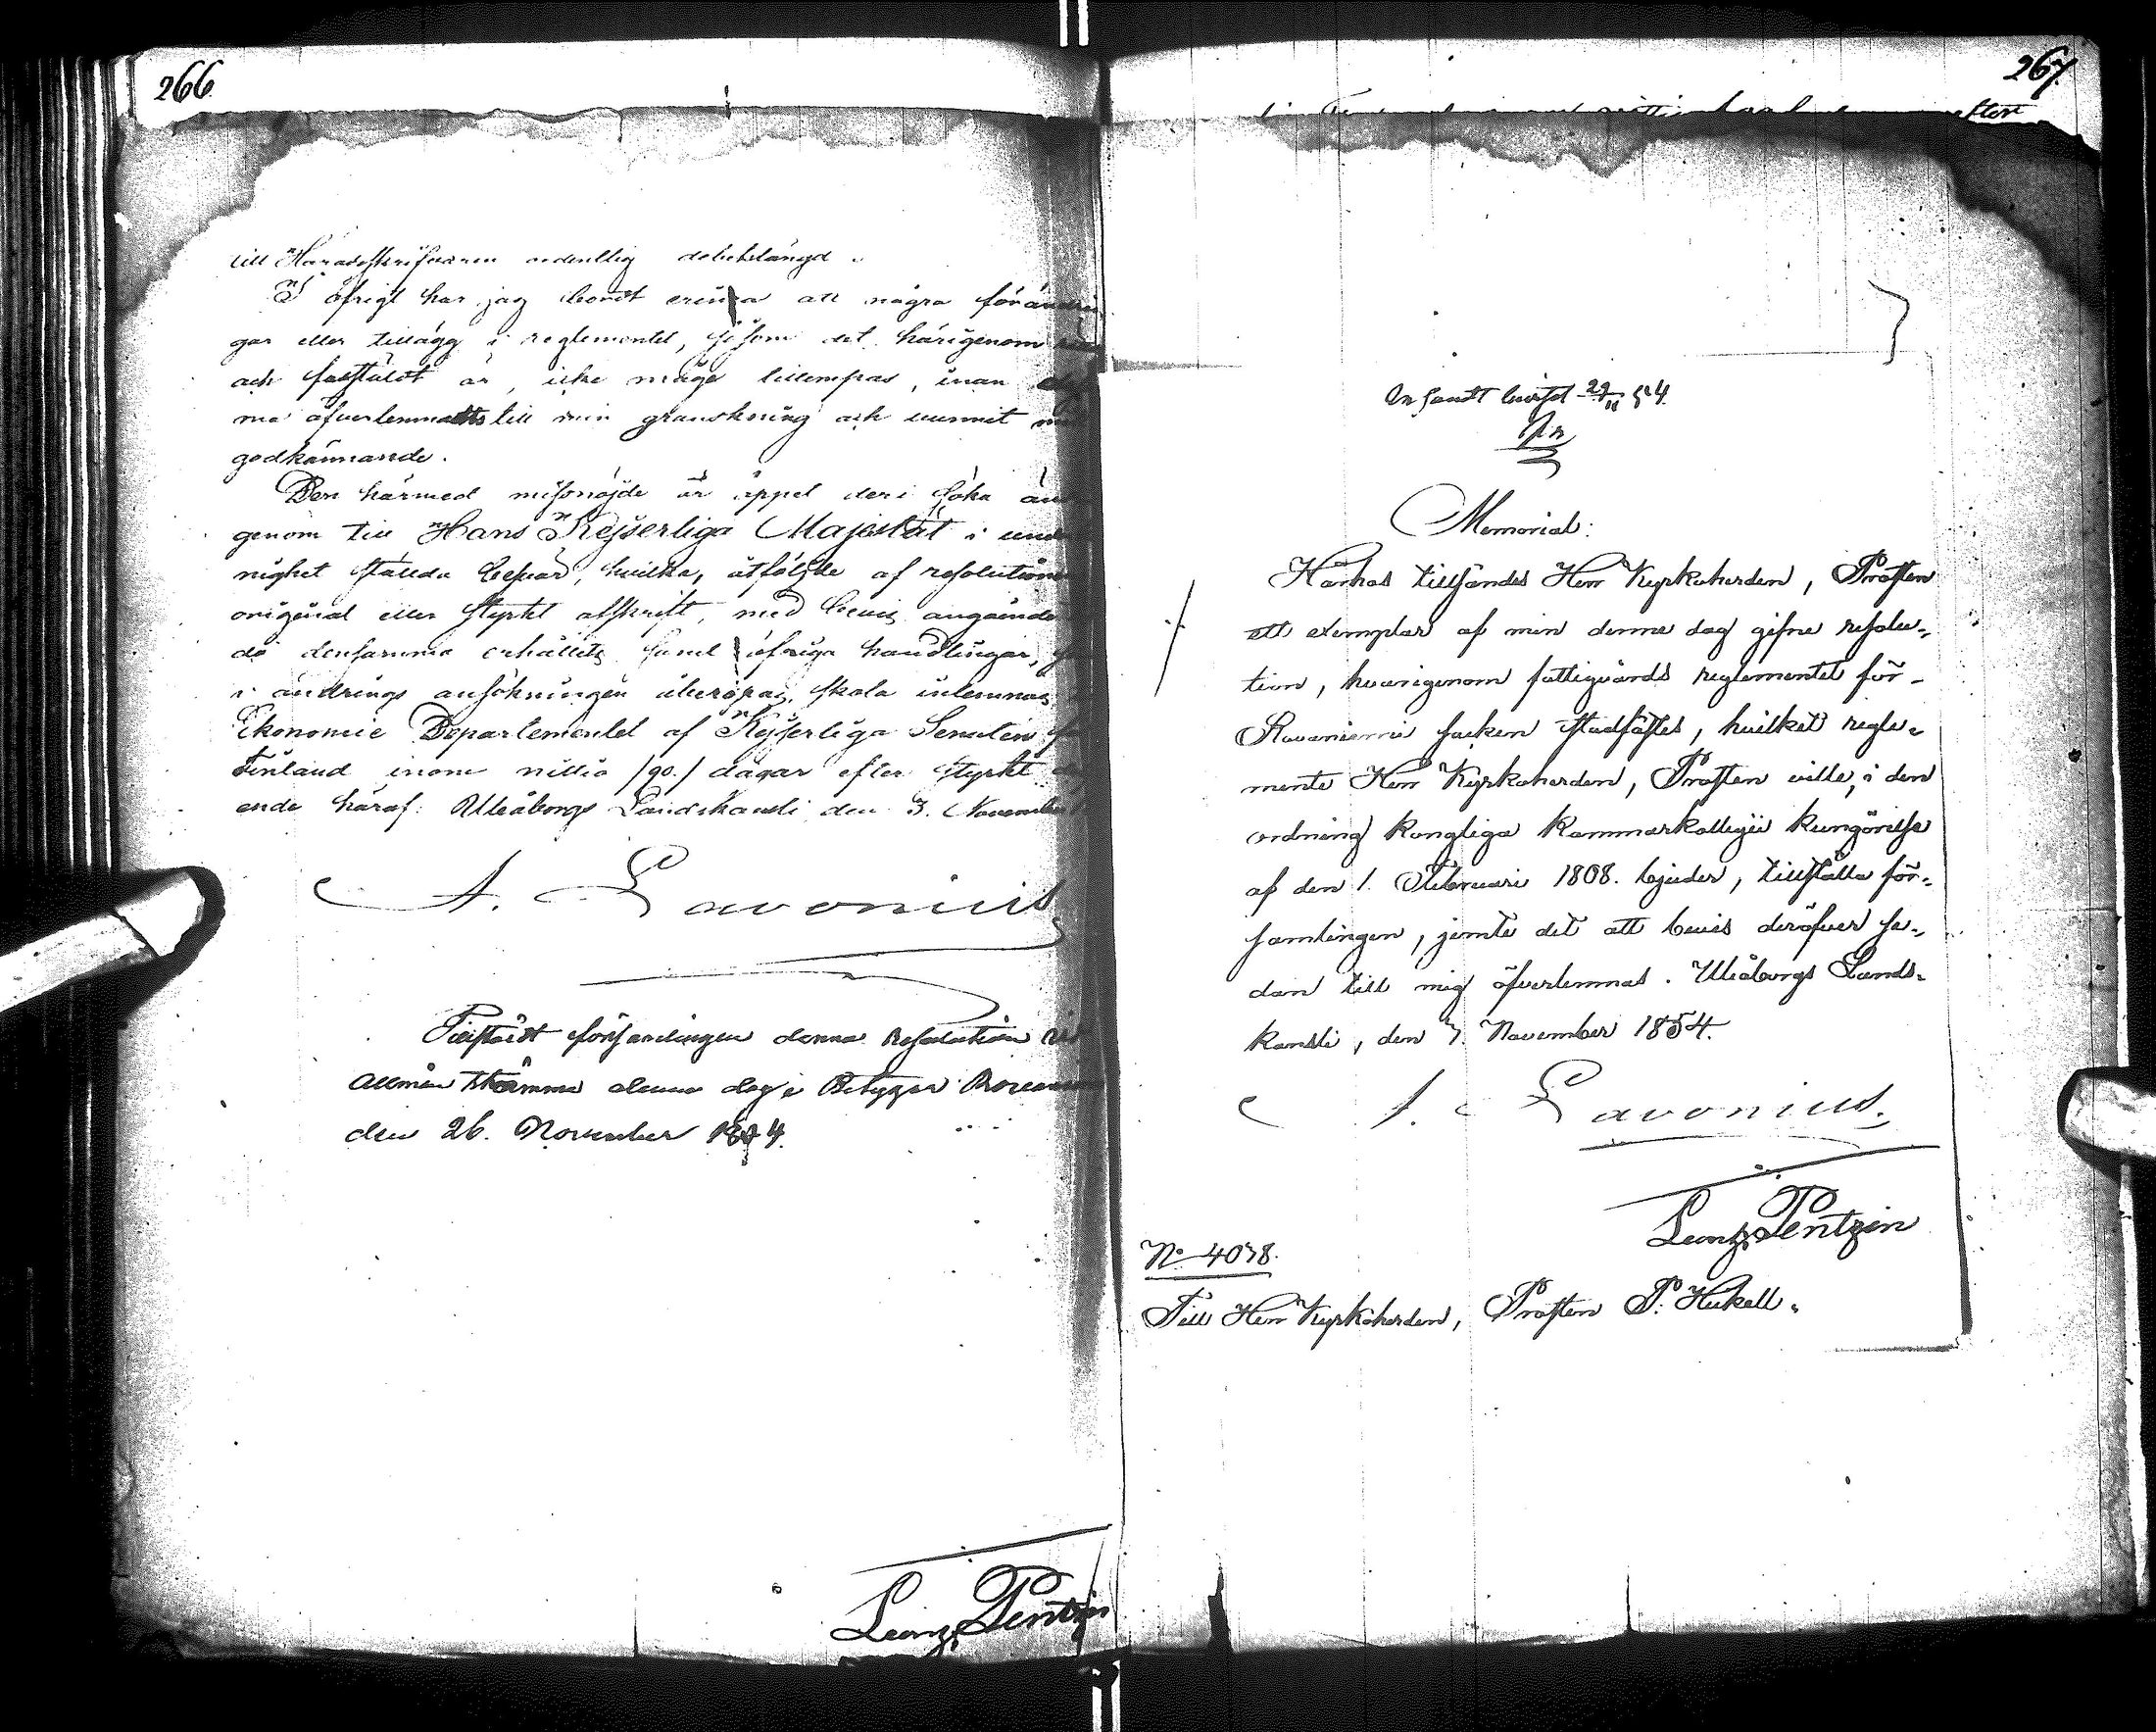 266
till Häradsskrifvaren ordentlig debetslängd.
I öfrigt har jag bordt erinra att några förändrin
gar eller tillägg i reglementet, såsom det härigenom
och fastståldt är, icke måge tillempas, innan
ma öfverlemnatts till min granskning och vunnit
godkännande.
Den härmed missnöjde är öppet deri söka än
genom till Hans Kejserliga Majestät i und
nighet ställda besvär, hvilka, åtföljde af resolution
original eller styrkt afskrift, med bevis angående
då densamma erhållits samt öfriga handlingar,
i ändrings ansökningen åberopas, skola inlemnas
Ekonomie Departementet af Kejserliga Senaten
Finland inom nittio /90./ dagar efter styrkt
ende häraf. Uleåborgs Landskansli den 3. November
A. Lavonius
Tillstäldt församlingen denna Resolution
Allmän stämma denna dag; Betygar Rovan
den 26. November 1854.
Lenz Pentzin
267.
efter
Insändt beviset 29/11 54.
Memorial:
Härhos tillsändes Herr Kyrkoherden, Prosten
ett exemplar af min denna dag gifne resolu-
tion, hvarigenom fattigvårds reglementet för
Rovaniemi socken stadfästes, hvilket regle-
mente Herr Kyrkoherden, Prosten ville, i den
ordning Kongliga Kammarkollegii kungörelse
af den 1. Februari 1808. bjuder, tillställa för-
samlingen, jemte det att bevis deröfver se-
dan till mig öfverlemnas. Uleåborgs Lands-
kansli, den 7. November 1854.
A. Lavonius.
Lenz Pentzin
No 4078.
Till Herr Kyrkoherden, Prosten P. Heikell.